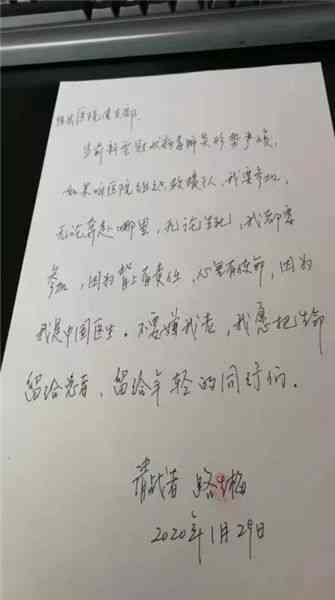 医院党支部：
当前新型冠状病毒肺炎形势严峻，
如果咱医院组织救援队，我要参加，
无论奔赴哪里，无论生死，我都要
参加，因为背上有责任，心里有使命，因为
我是中国医生。不要嫌我老，我愿把生命
留给患者，留给年轻的同行们。
请战者 路梅
2020年1月29日